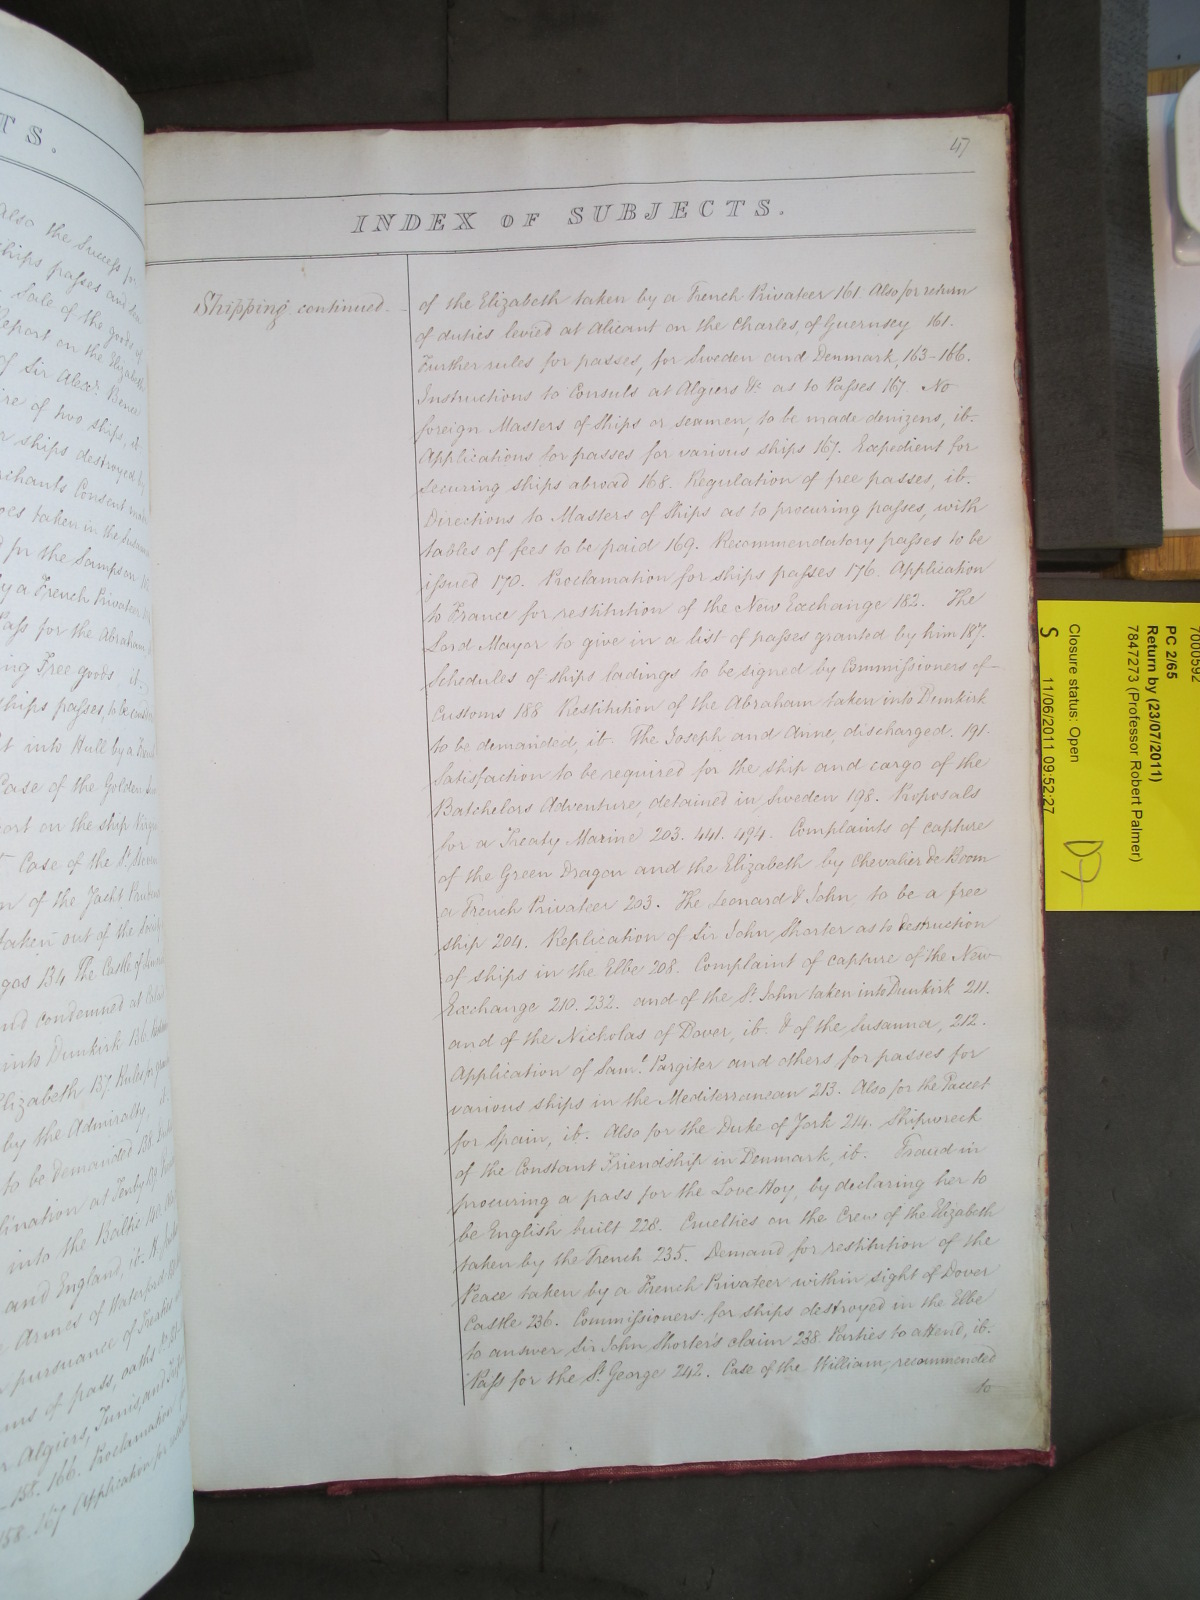 TS.
also the Success for
ships passes and
Sale of the goods of
Report on the Elizabeth
of Sir Alexr. Bence
of two ships, at
ships destroyed by
Merchants Consent
taken in the Susanna
for the Sampson
by a French Privateer
Pass for the Abraham
Free goods
ships passes, to be
into Hull by a
Case of the Golden
on the ship
Case of the St.
of the Yacht
taken out of the
134 The Castle of
and condemned at
into Dunkirk 136.
Elizabeth 137. Rules for
by the Admiralty, ib.
to be demanded 138.
at Tenby 139.
into the Baltic 140.
and England, ib.
Arms of Waterford
pursuance of Treaties
of pass, oaths to
Algiers, Tunis, and
158. 166. Proclamation
158. 167 Application for
47
INDEX OF SUBJECTS.
Shipping continued.
of the Elizabeth taken by a French Privateer 161. Also for return
of duties levied at Alicant on the Charles, of Guernsey 161.
Further rules for passes, for Sweden and Denmark, 163-166.
Instructions to Consuls at Algiers &c as to Passes 167. No
foreign Masters of Ships or seamen, to be made denizens, ib.
Applications for passes for various ships 167. Expedient for
securing ships abroad 168. Regulation of free passes, ib.
Directions to Masters of Ships as to procuring passes, with
tables of fees to be paid 169. Recommendatory passes to be
issued 170. Proclamation for ships passes 176. Application
to France for restitution of the New Exchange 182. The
Lord Mayor to give in a list of passes granted by him 187.
Schedules of ships ladings to be signed by Commissioners of
Customs 188 Restitution of the Abraham taken into Dunkirk
to be demanded, ib. The Joseph and Anne, discharged, 191.
Satisfaction to be required for the ship and cargo of the
Batchelors Adventure, detained in Sweden 198. Proposals
for a Treaty Marine 203. 441. 494. Complaints of capture
of the Green Dragon and the Elizabeth by Chevalier de Boom
a French Privateer 203. The Leonard & John, to be a free
ship 204. Replication of Sir John Shorter as to destruction
of ships in the Elbe 208. Complaint of capture of the New
Exchange 210. 232. and of the St. John taken into Dunkirk 211.
and of the Nicholas of Dover, ib. & of the Susanna, 212.
Application of Saml. Pargiter and others for passes for
various ships in the Mediterranean 213. Also for the Paccet
for Spain, ib. Also for the Duke of York 214. Shipwreck
of the Constant Friendship in Denmark, ib. Fraud in
procuring a pass for the Love Hoy, by declaring her to
be English built 228. Cruelties on the Crew of the Elizabeth
taken by the French 235. Demand for restitution of the
Peace taken by a French Privateer within sight of Dover
Castle 236. Commissioners for ships destroyed in the Elbe
to answer Sir John Shorter's claim 238 Parties to attend, ib.
Pass for the St. George 242. Case of the William, recommended
to
7000592
PC 2/65
Return by (23/07/2011)
7847273 (Professor Robert Palmer)
Closure status: Open
S 11/06/2011 09:52:27